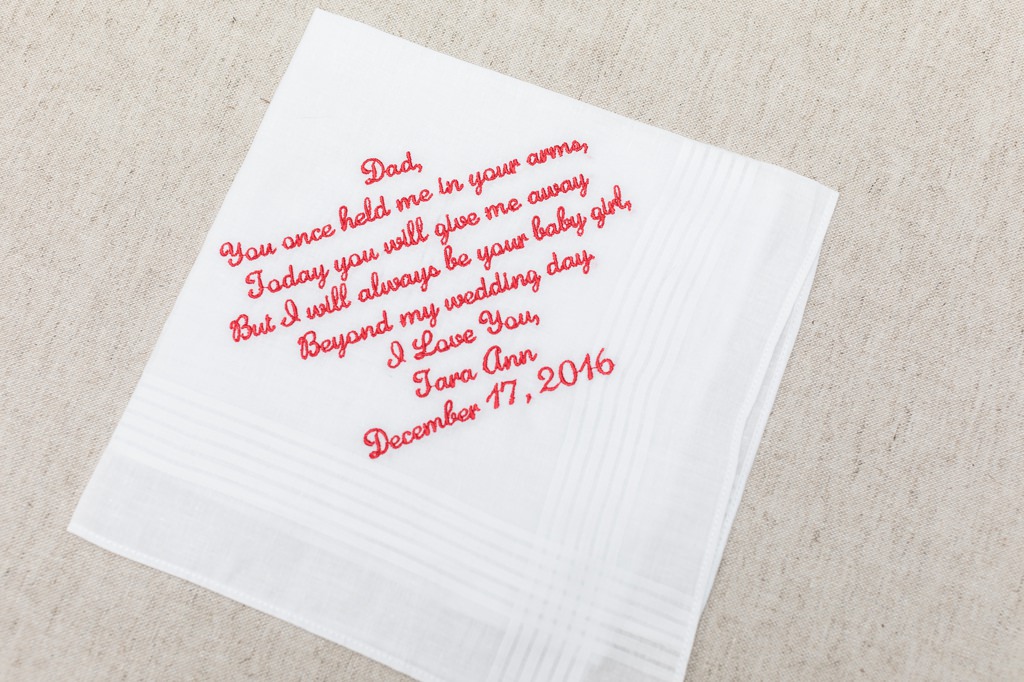 Dad,
You once held me in your arms,
Today you will give me away
But I will always be your baby girl,
Beyond my wedding day.
I Love You,
Tara Ann
December 17, 2016